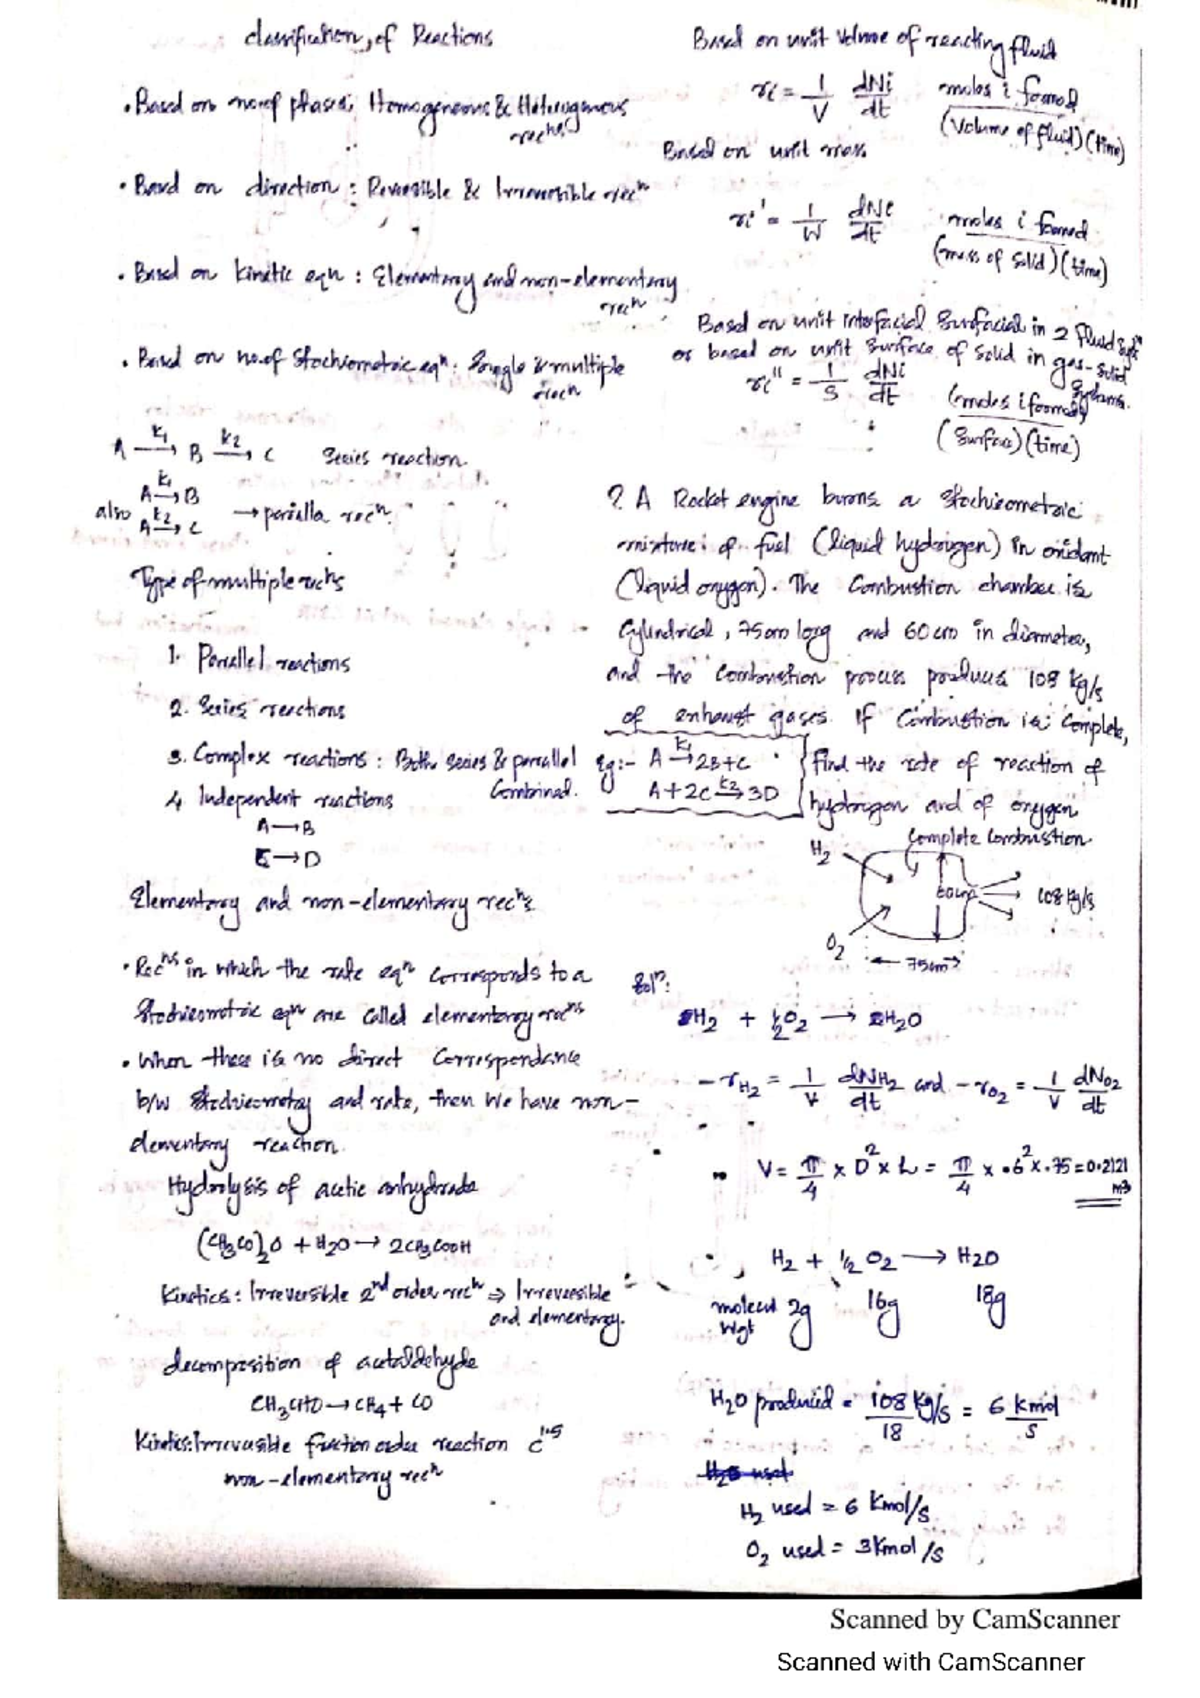 classification, of Reactions
• Based on no.of phases; Homogeneous & Heterogenous
recⁿs
• Based on direction : Reversible & Irreversible recⁿ
• Based on kinetic eqn : Elementary and non-elementary
recⁿ
• Based on no.of Stochiometric eqⁿ: Single & multiple
recn
A —k₁→ B —k₂→ C   Series reaction
A —k₁→ B
also A —k₂→ C   → parallel recⁿ.
Type of multiple rcns
1. Parallel reactions
2. Series reactions
3. Complex reactions : Both series & parallel
Combined.
4 Independent reactions
A → B
C → D
Elementary and non-elementary recⁿs
• Recⁿs in which the rate eqⁿ corresponds to a
Stochiometric eqn are called elementary recⁿs
• When there is no direct Correspondance
b/w Stochiometry and rate, then we have non-
elementary reaction.
Hydrolysis of acetic anhydride
(CH₃CO)₂O + H₂O → 2CH₃COOH
Kinetics : Irreversible 2nd order recⁿ ⇒ Irreversible
and elementary.
decomposition of acetaldehyde
CH₃CHO → CH₄ + CO
Kinetics: Irreversible fraction order reaction C^1.5
non-elementary recⁿ
Based on unit volume of reacting fluid
ri = 1/V dNi/dt   moles i formed / (Volume of fluid)(time)
Based on unit mass
ri' = 1/W dNi/dt   moles i formed / (mass of solid)(time)
Based on unit interfacial Surfacial in 2 fluid
or based on unit surface of solid in gas-solid
systems.
ri'' = 1/S dNi/dt   (moles i formed) / (Surface)(time)
?. A Rocket engine burns a stochiometric
mixture of fuel (liquid hydrogen) in oxidant
(liquid oxygen). The Combustion chamber is
Cylindrical, 75cm long and 60cm in diameter,
and the combustion process produces 108 kg/s
of exhaust gases. If Combustion is complete,
Eg:- A —k₁→ 2B+C
A + 2C —k₂→ 3D
find the rate of reaction of
hydrogen and of oxygen
Complete Combustion
H₂
60cm
108 kg/s
O₂
75cm
Solⁿ:
H₂ + ½O₂ → H₂O
-rH₂ = 1/V dNH₂/dt and -rO₂ = 1/V dNO₂/dt
V = π/4 × D² × L = π/4 × .6² × .75 = 0.2121 m³
H₂ + ½ O₂ → H₂O
molecul 2g   16g   18g
wgt
H₂O produced = 108 kg/s / 18 = 6 kmol/s
H₂ used = 6 Kmol/s
O₂ used = 3Kmol/s
Scanned by CamScanner
Scanned with CamScanner